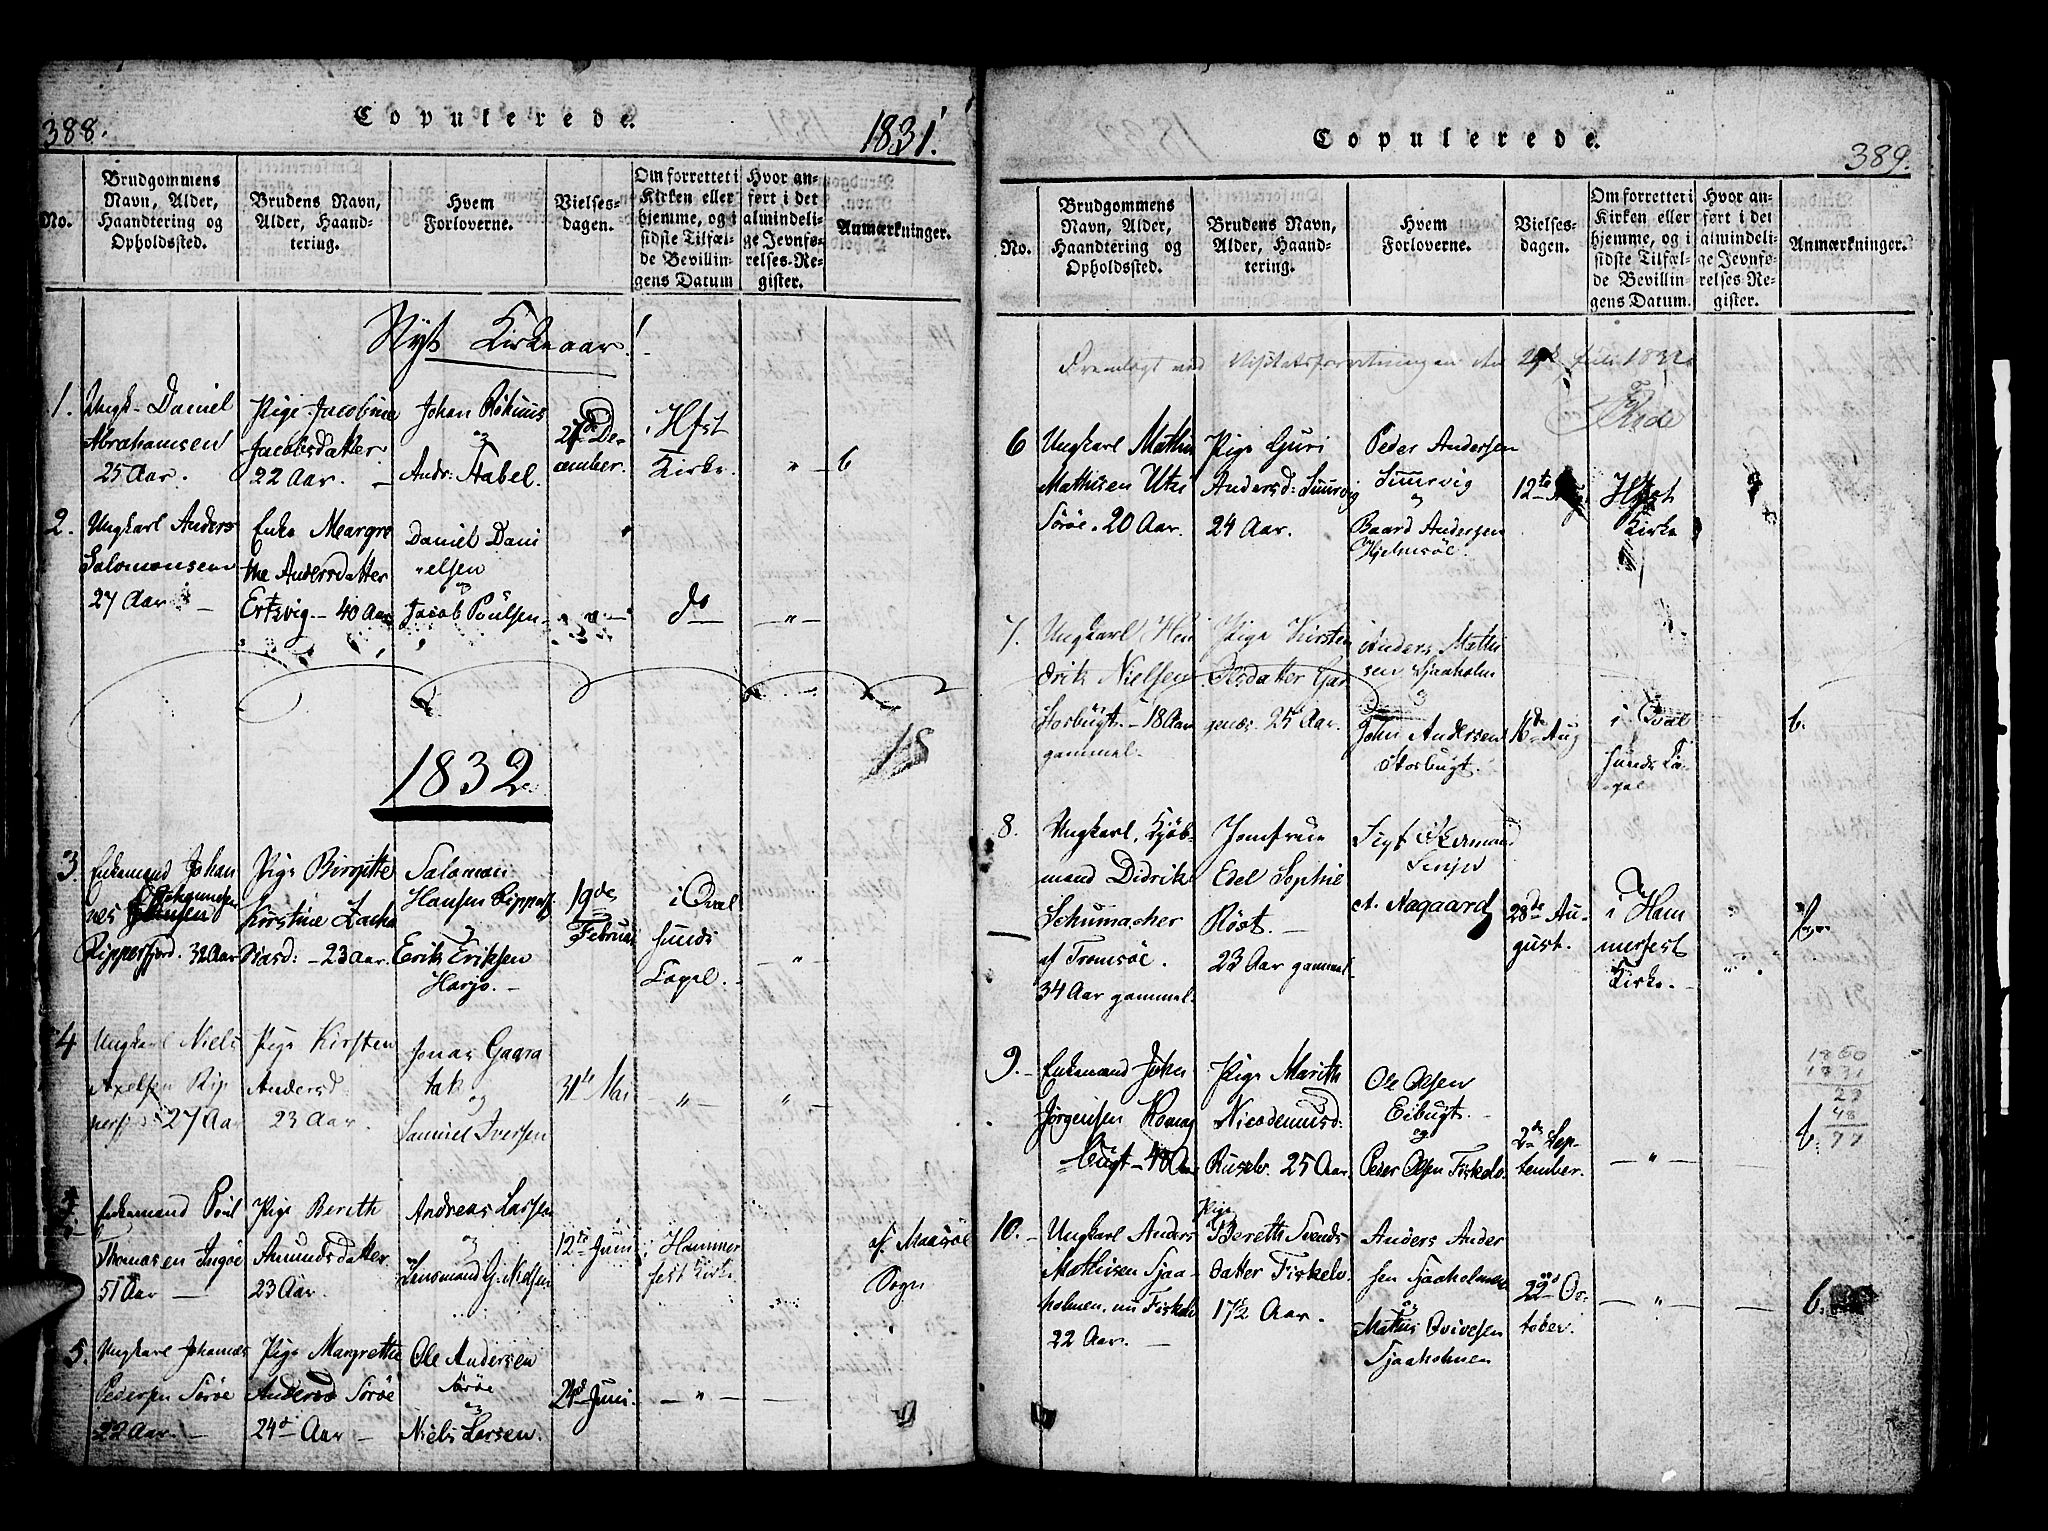 388.
Copulerede.
1831.
No.
Brudgommens Navn, Alder, Haandtering og Opholdssted.
Brudens Navn, Alder, Haandtering.
Hvem Forloverne.
Vielsesdagen.
Om forrettet i Kirken eller hjemme, og i sidste Tilfælde Bevillingens Datum
Hvor anført i det almindelige Jevnførelses-Register.
Anmærkninger.
Nyt Kirkeaar!
1. Ungk. Daniel
Abrahamsen
25 Aar.
Pige Jacobine
Jacobsdatter
22 Aar. —
Johan
og
Andr: Stabel.
27de December.
i Hfst
Kirke.
"
6
2. Ungkarl Anders
Salomonsen
27 Aar —
Enke Margrethe Andersdatter
Ertsvig — 40 Aar
Daniel Danielsen
og
Jacob Poulsen.
do
"
1832
3. Enkemand Johannes
Ripperfjord. 32 Aar
Pige Birgitte
Kirstine Zachariasd: — 23 Aar.
Salomon
Hansen Ripperf.
og
Erik Eriksen
19de
Februar
i Qvalsunds
Capel.
"
4 Ungkarl Niels
Axelsen Ripperfjd 27 Aar
Pige Kirsten
Andersd
23 Aar.
Jonas
og
Samuel Iversen
31te Mai
"
"
Enkemand Poul
Thomasen Ingøe
51 Aar —
Pige Bereth
Amundsdatter
23 Aar.
Andreas Larsen
og
Lensmand G. Nielsen
12te Juni
i Hammerfest Kirke
"
af Maasøe
Sogn
5. Ungkarl Johannes
Pedersen Sørøe
22 Aar. —
Pige Margrethe
Andersd Sørøe
24 Aar —
Ole Andersen
Sørøe
og
Niels Larsen.
24d Juni.
"
Copulerede.
389.
No.
Brudgommens Navn, Alder, Haandtering og Opholdssted.
Brudens Navn, Alder, Haandtering.
Hvem Forloverne.
Vielsesdagen.
Om forrettet i Kirken eller hjemme, og i sidste Tilfælde Bevillingens Datum.
Hvor anført i det almindelige Jevnførelses-Register.
Anmærkninger.
Fremlagt ved Visitatsforretningen den Juli 1832
6 Ungkarl Mathis
Mathisen Utsi
Sørøe. 20 Aar.
Pige Guri
Andersd:
24 Aar.
Peder Andersen
og
Baard Andersen
Hjelmsøe.
12te
Hfst
Kirke
7. Ungkarl Hendrik Nielsen
Storbugt. — 18 Aar
gammel.
Pige Kirsten
Olsdatter Gargenæs. 25 Aar.
Anders Mathisen Sjaaholm
og
John Andersen
Storbugt.
16de Aug
i Qvalsunds Capel
6.
8. Ungkarl, Kjøbmand Didrik
Schumacher
af Tromsøe.
34 Aar gammel.
Jomfrue
Edel Sophie
Röst. —
23 Aar gammel
A. Aagaard
28de August.
i Hammerfest
Kirke. —
"
9. — Enkemand John
Jørgensen
bugt — 48 Aar
Pige Marith
Nicodemusd:
Russelv. 25 Aar.
Ole Olsen
Eibugt. —
og
Peder Olsen Fiskelv.
2den September.
"
1860
1831
29
48
77
6.
10. — Ungkarl Anders
Mathisen Sjaaholmen, nu Fiskelv
22 Aar. —
Pige
Bereth Svendsdatter Fiskelv.
17½ Aar.
Anders Andersen Sjaaholmen
og
Mathis
Sjaaholmen
22de October.
"
6.